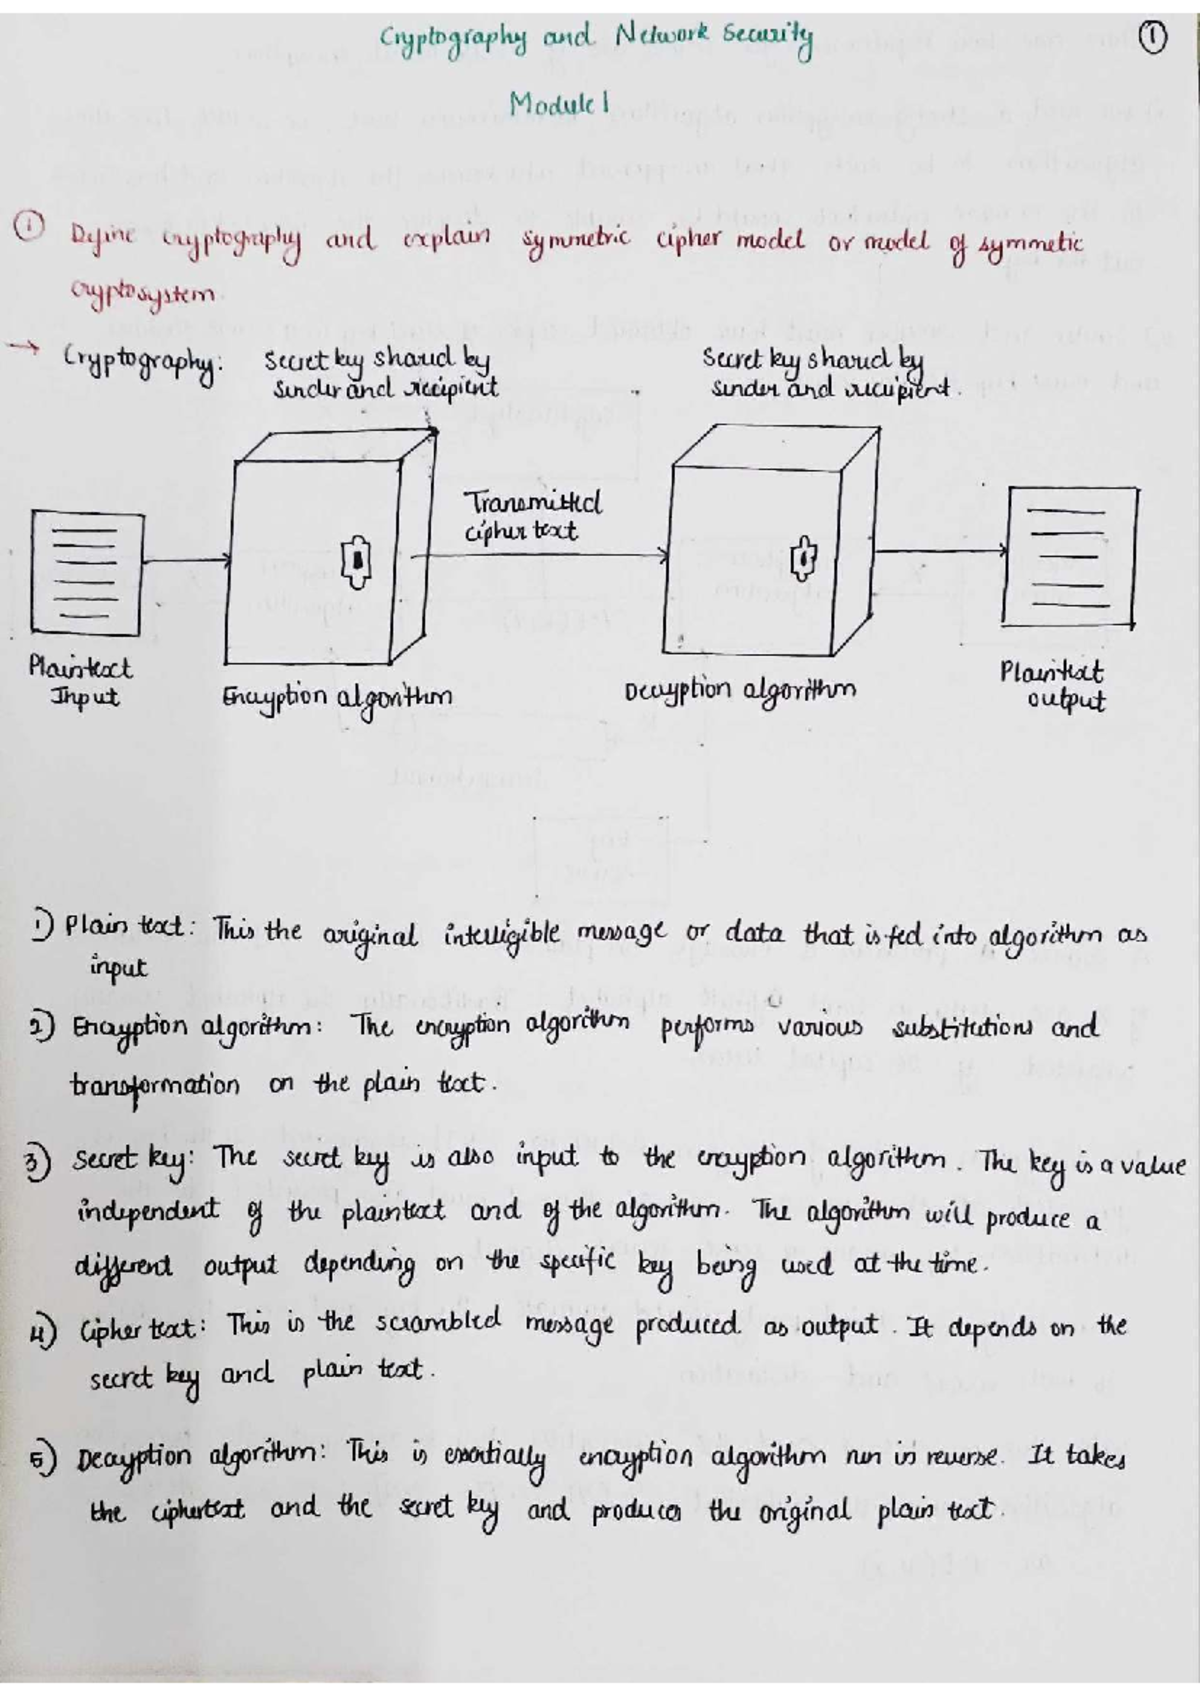 Cryptography and Network Security
1
Module 1
1 Define cryptography and explain symmetric cipher model or model of symmetic
cryptosystem
→ Cryptography:
Secret key shared by
sender and recipient
Secret key shared by
sender and recipient.
Transmitted
cipher text
Plaintext
Input
Encryption algorithm
Decryption algorithm
Plaintext
output
1) Plain text: This the original intelligible message or data that is fed into algorithm as
input
2) Encryption algorithm: The encryption algorithm performs various substitutions and
transformation on the plain text.
3) Secret key: The secret key is also input to the encryption algorithm. The key is a value
independent of the plaintext and of the algorithm. The algorithm will produce a
different output depending on the specific key being used at the time.
4) Cipher text: This is the scrambled message produced as output. It depends on the
secret key and plain text.
5) Decryption algorithm: This is essentially encryption algorithm run in reverse. It takes
the ciphertext and the secret key and produces the original plain text.